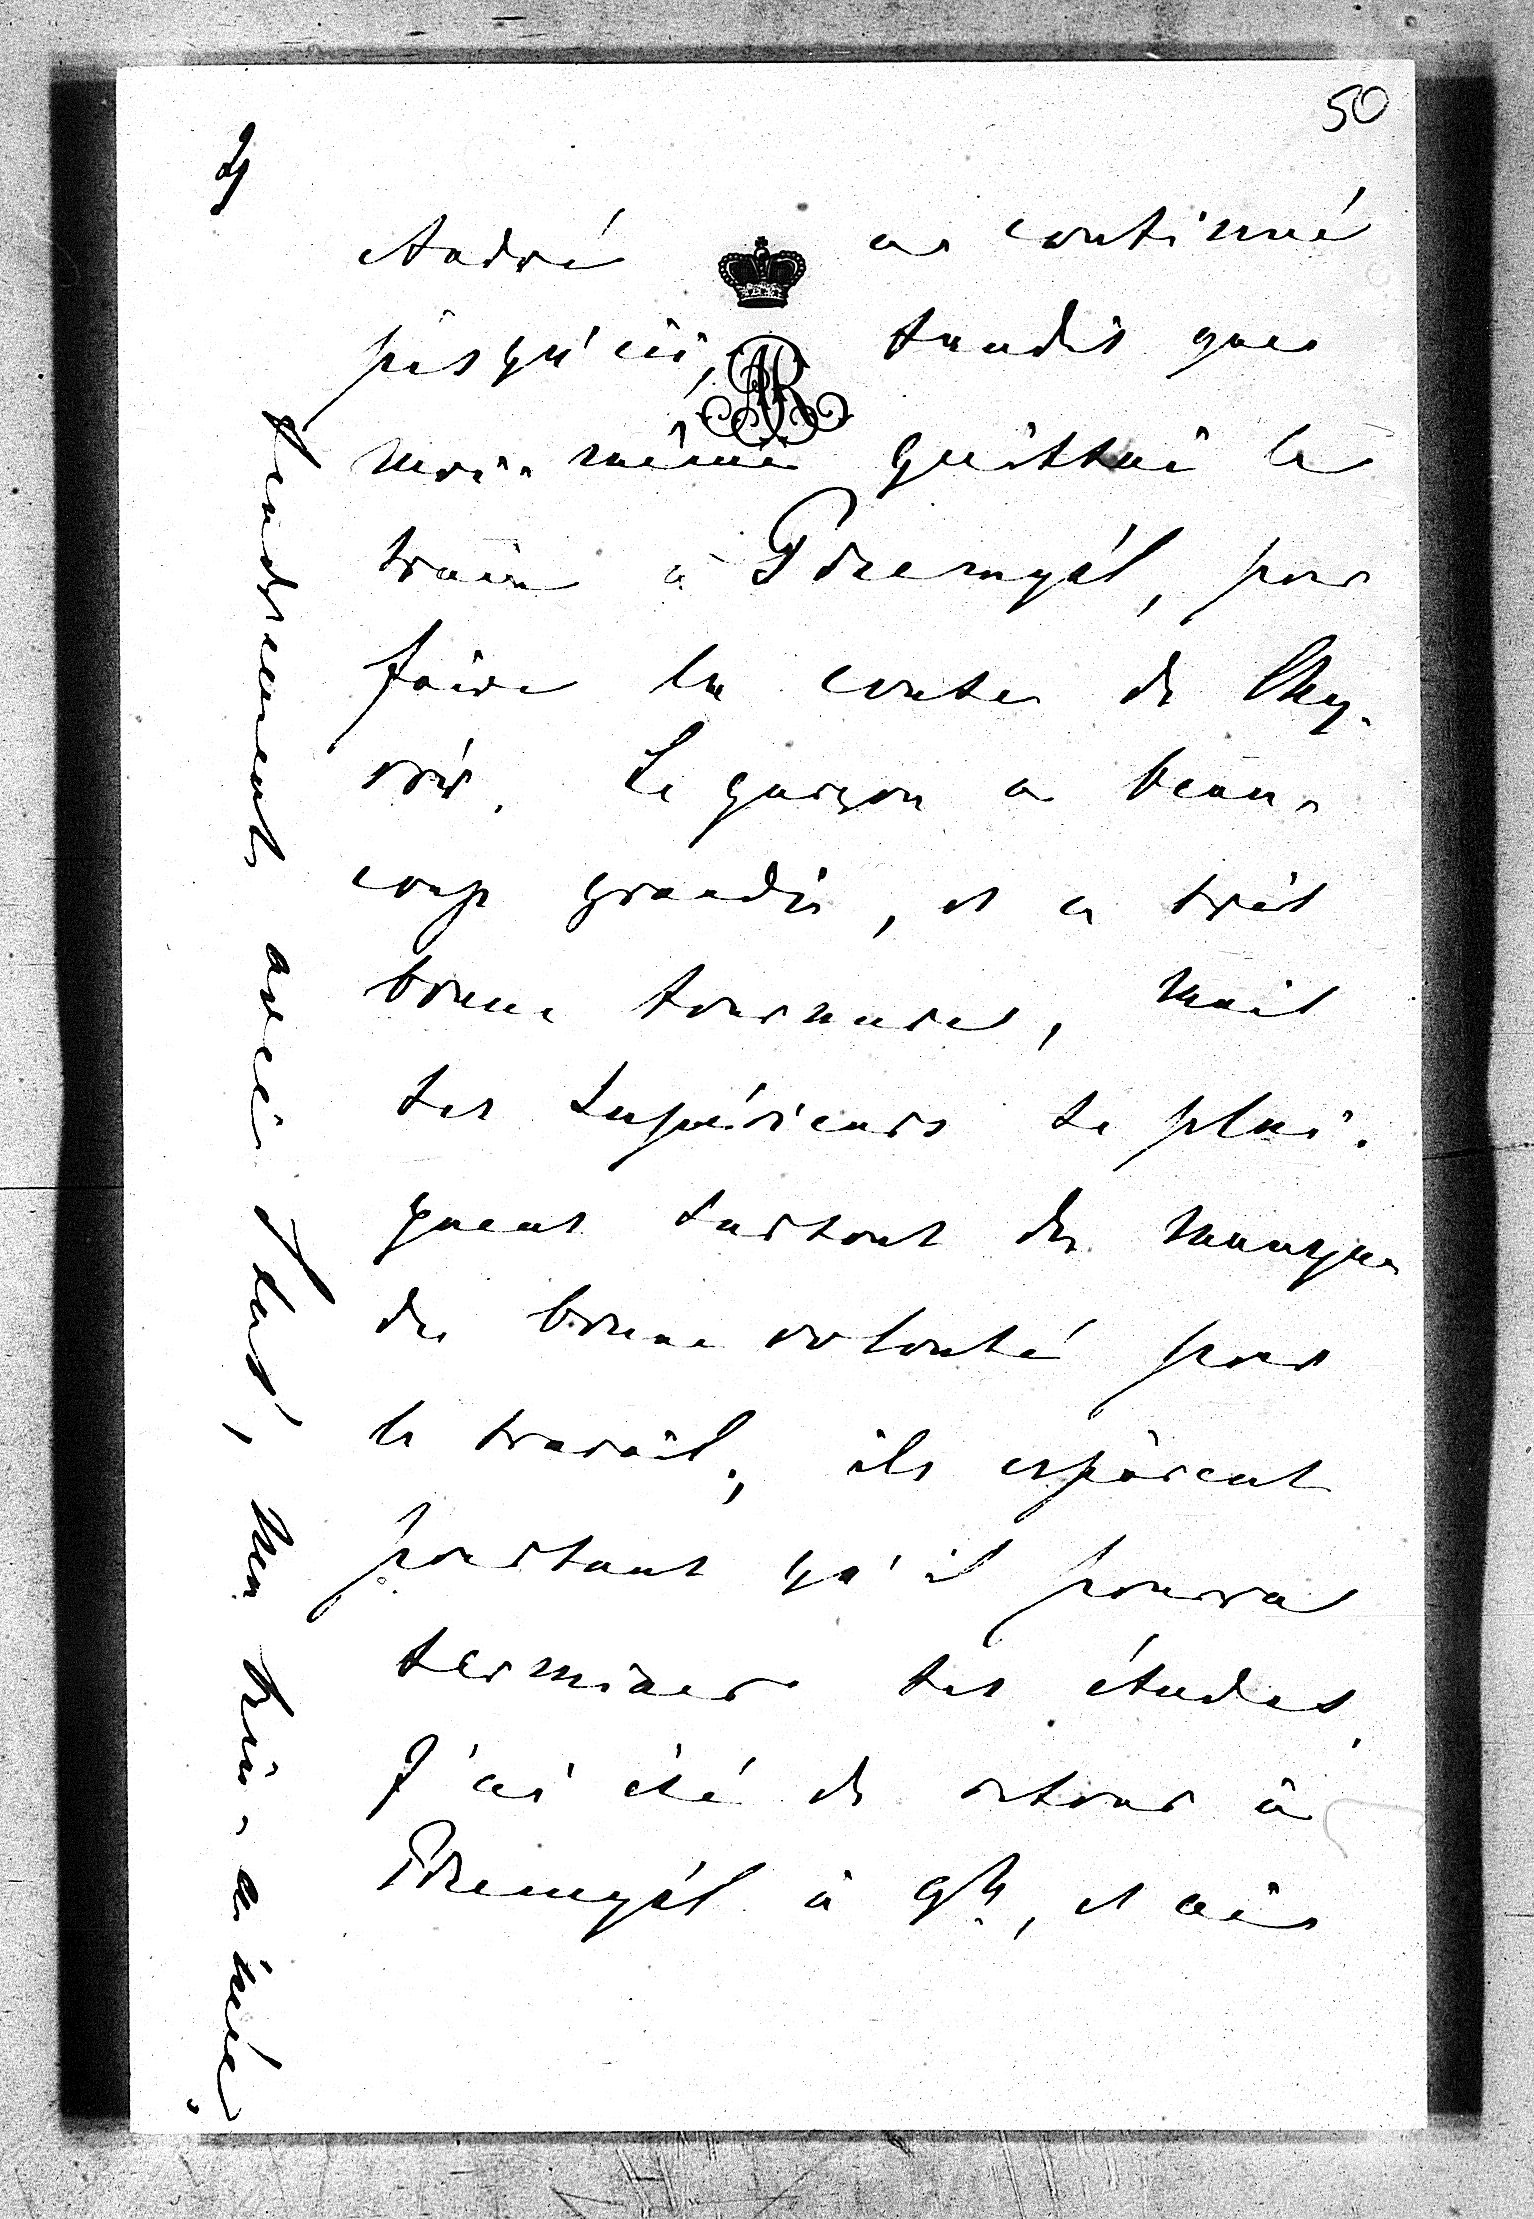 50
2)
André a continué
jusqu'ici, tandis que
AR
moi-même quittai le
train à Przemyśl, pour
faire la route de Chy-
rów. Le garçon a beau-
coup grandi, et a très
bonne tournure, mais
ses supérieurs se plai-
gnent surtout du manque
de bonne volonté pour
le travail; ils espèrent
pourtant qu'il pourra
terminer ses études.
J'ai été de retour à
Przemyśl à 9h, et ai
tendrement avec Toi, ma très-aimée,